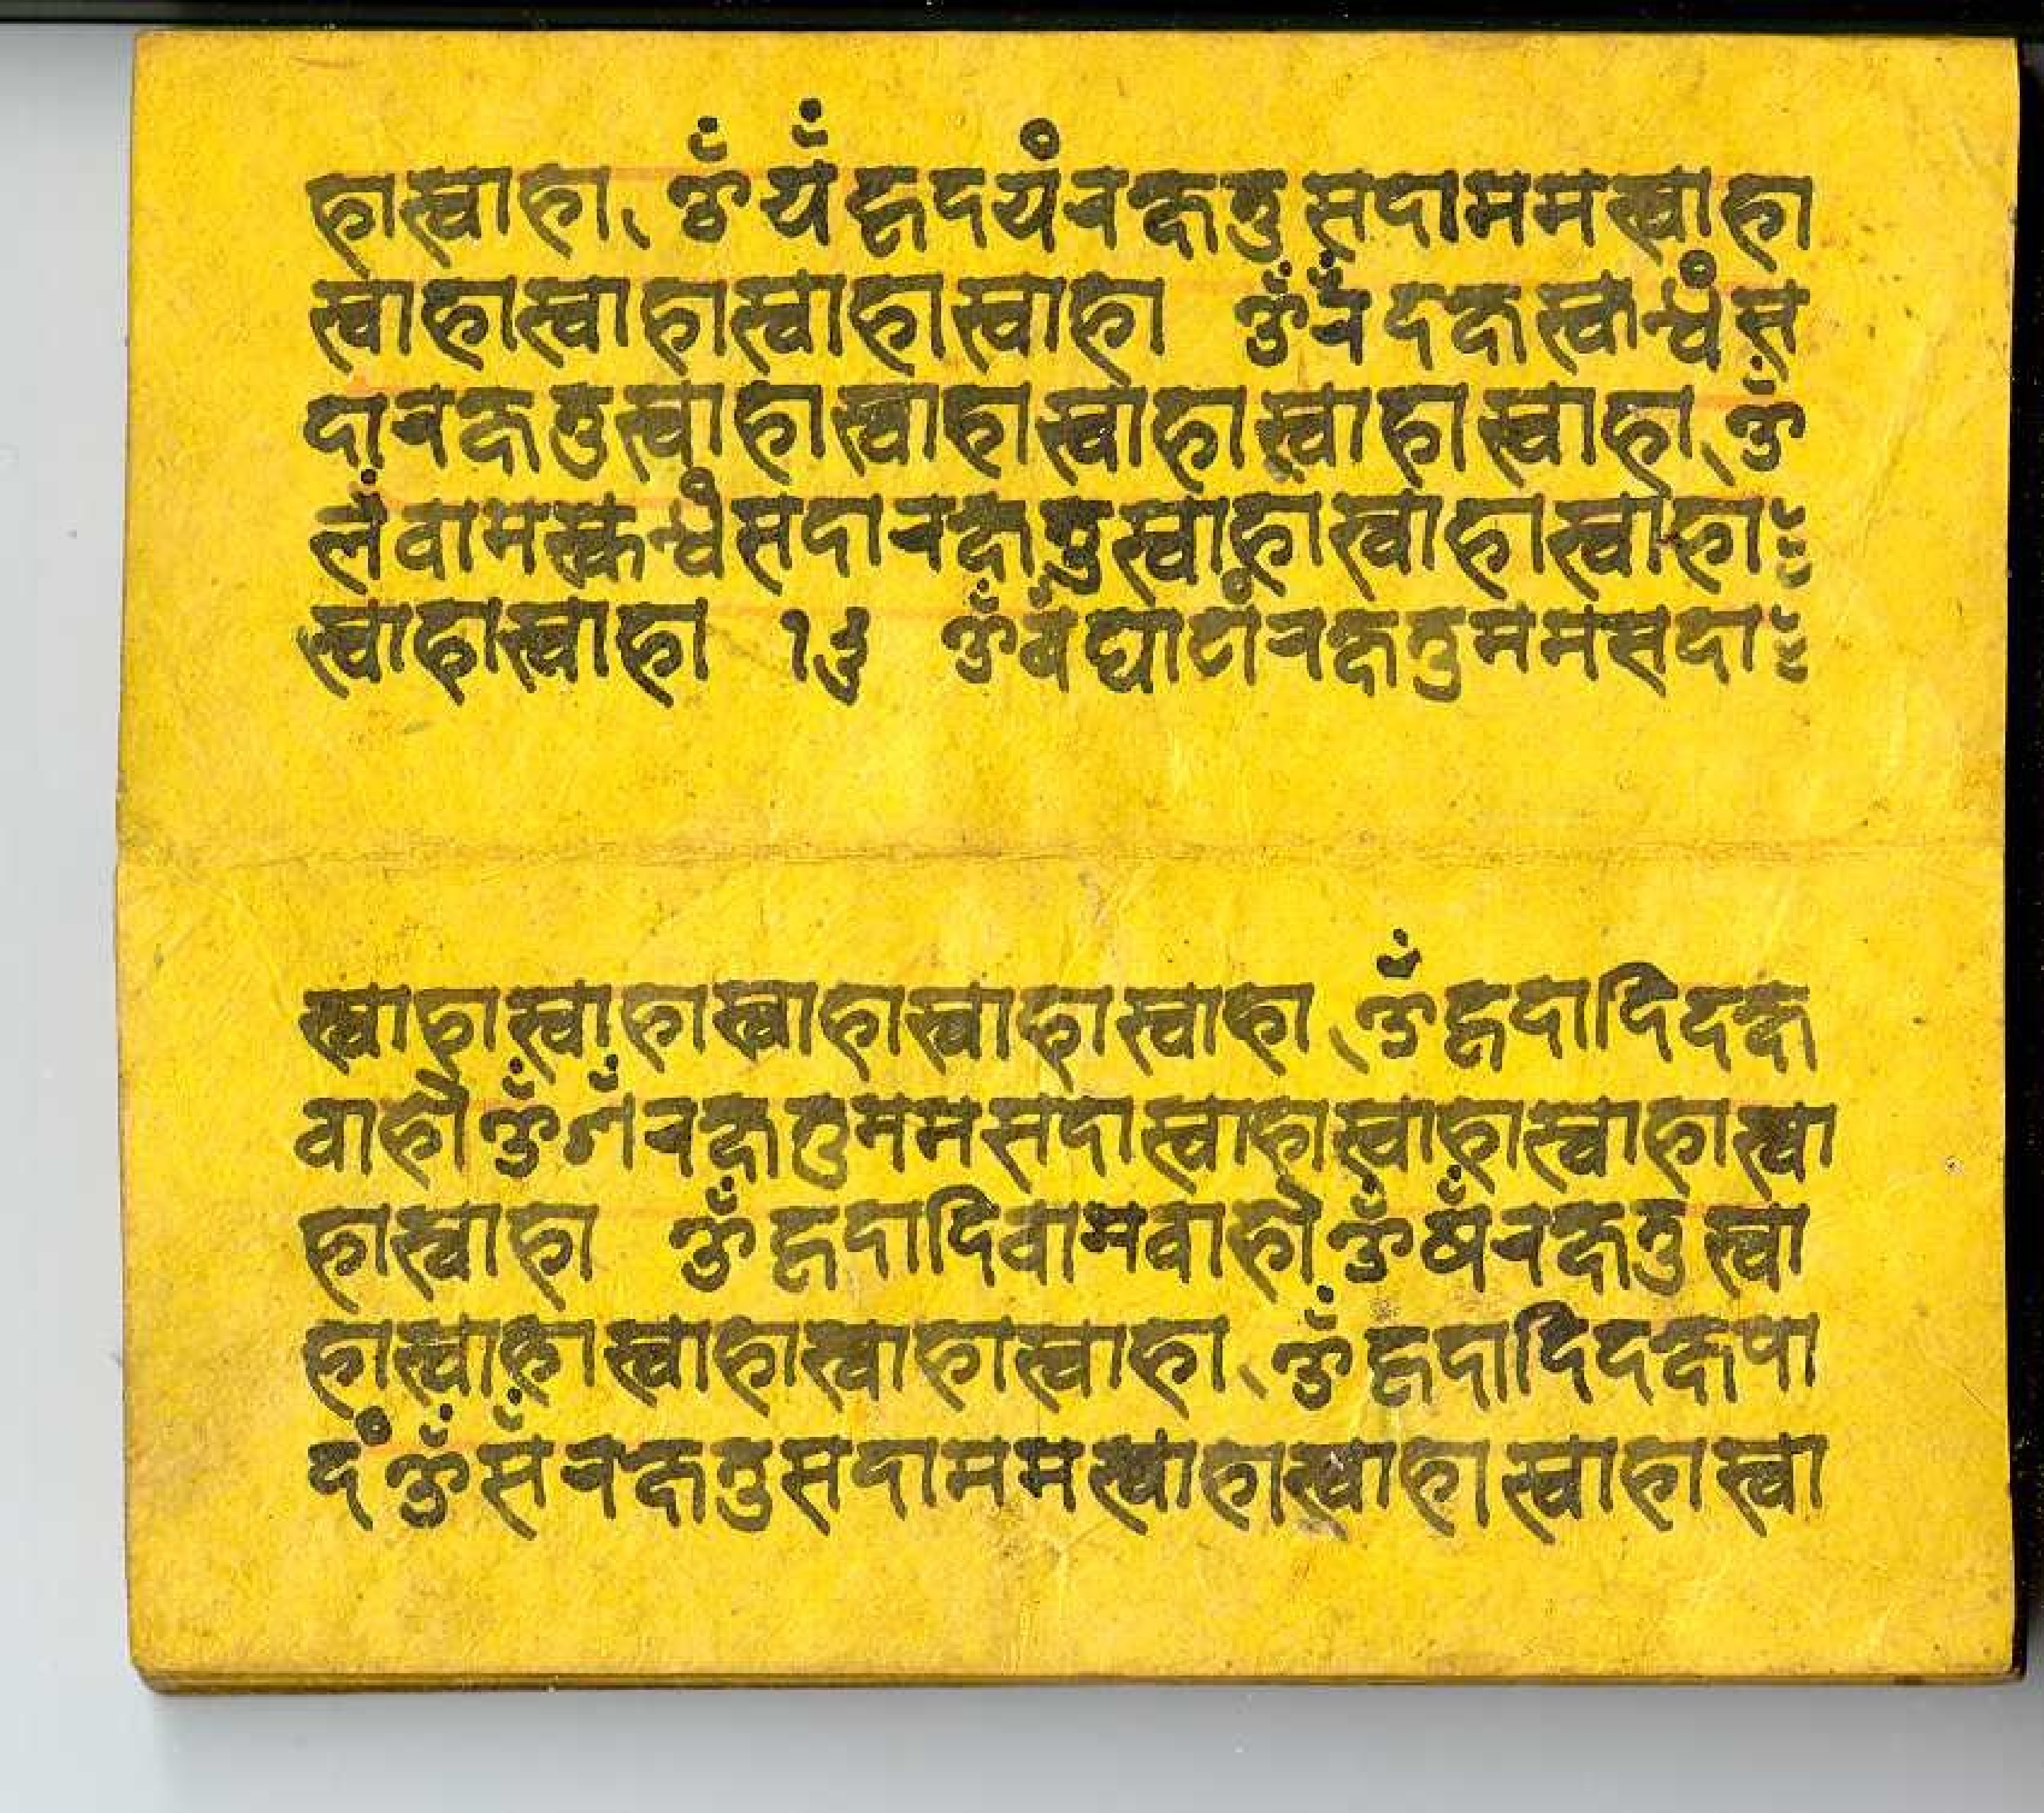 हास्वाहा, ॐयँहृदयंरक्षतुसदाममस्वाहा
स्वाहास्वाहास्वाहास्वाहा ॐरँदक्षस्कन्धंस
दारक्षतुस्वाहास्वाहास्वाहास्वाहास्वाहा, ॐ
लँवामस्कन्धंसदारक्षतुस्वाहास्वाहास्वाहा
स्वाहास्वाहा १३ ॐवँघाटांरक्षतुममसदा
स्वाहास्वाहास्वाहास्वाहास्वाहा, ॐहृदादिदक्ष
वाहौॐशँरक्षतुममसदास्वाहास्वाहास्वाहास्वा
हास्वाहा ॐहृदादिवामवाहौॐषँरक्षतुस्वा
हास्वाहास्वाहास्वाहास्वाहा, ॐहृदादिदक्षपा
दंॐसँरक्षतुसदाममस्वाहास्वाहास्वाहास्वा